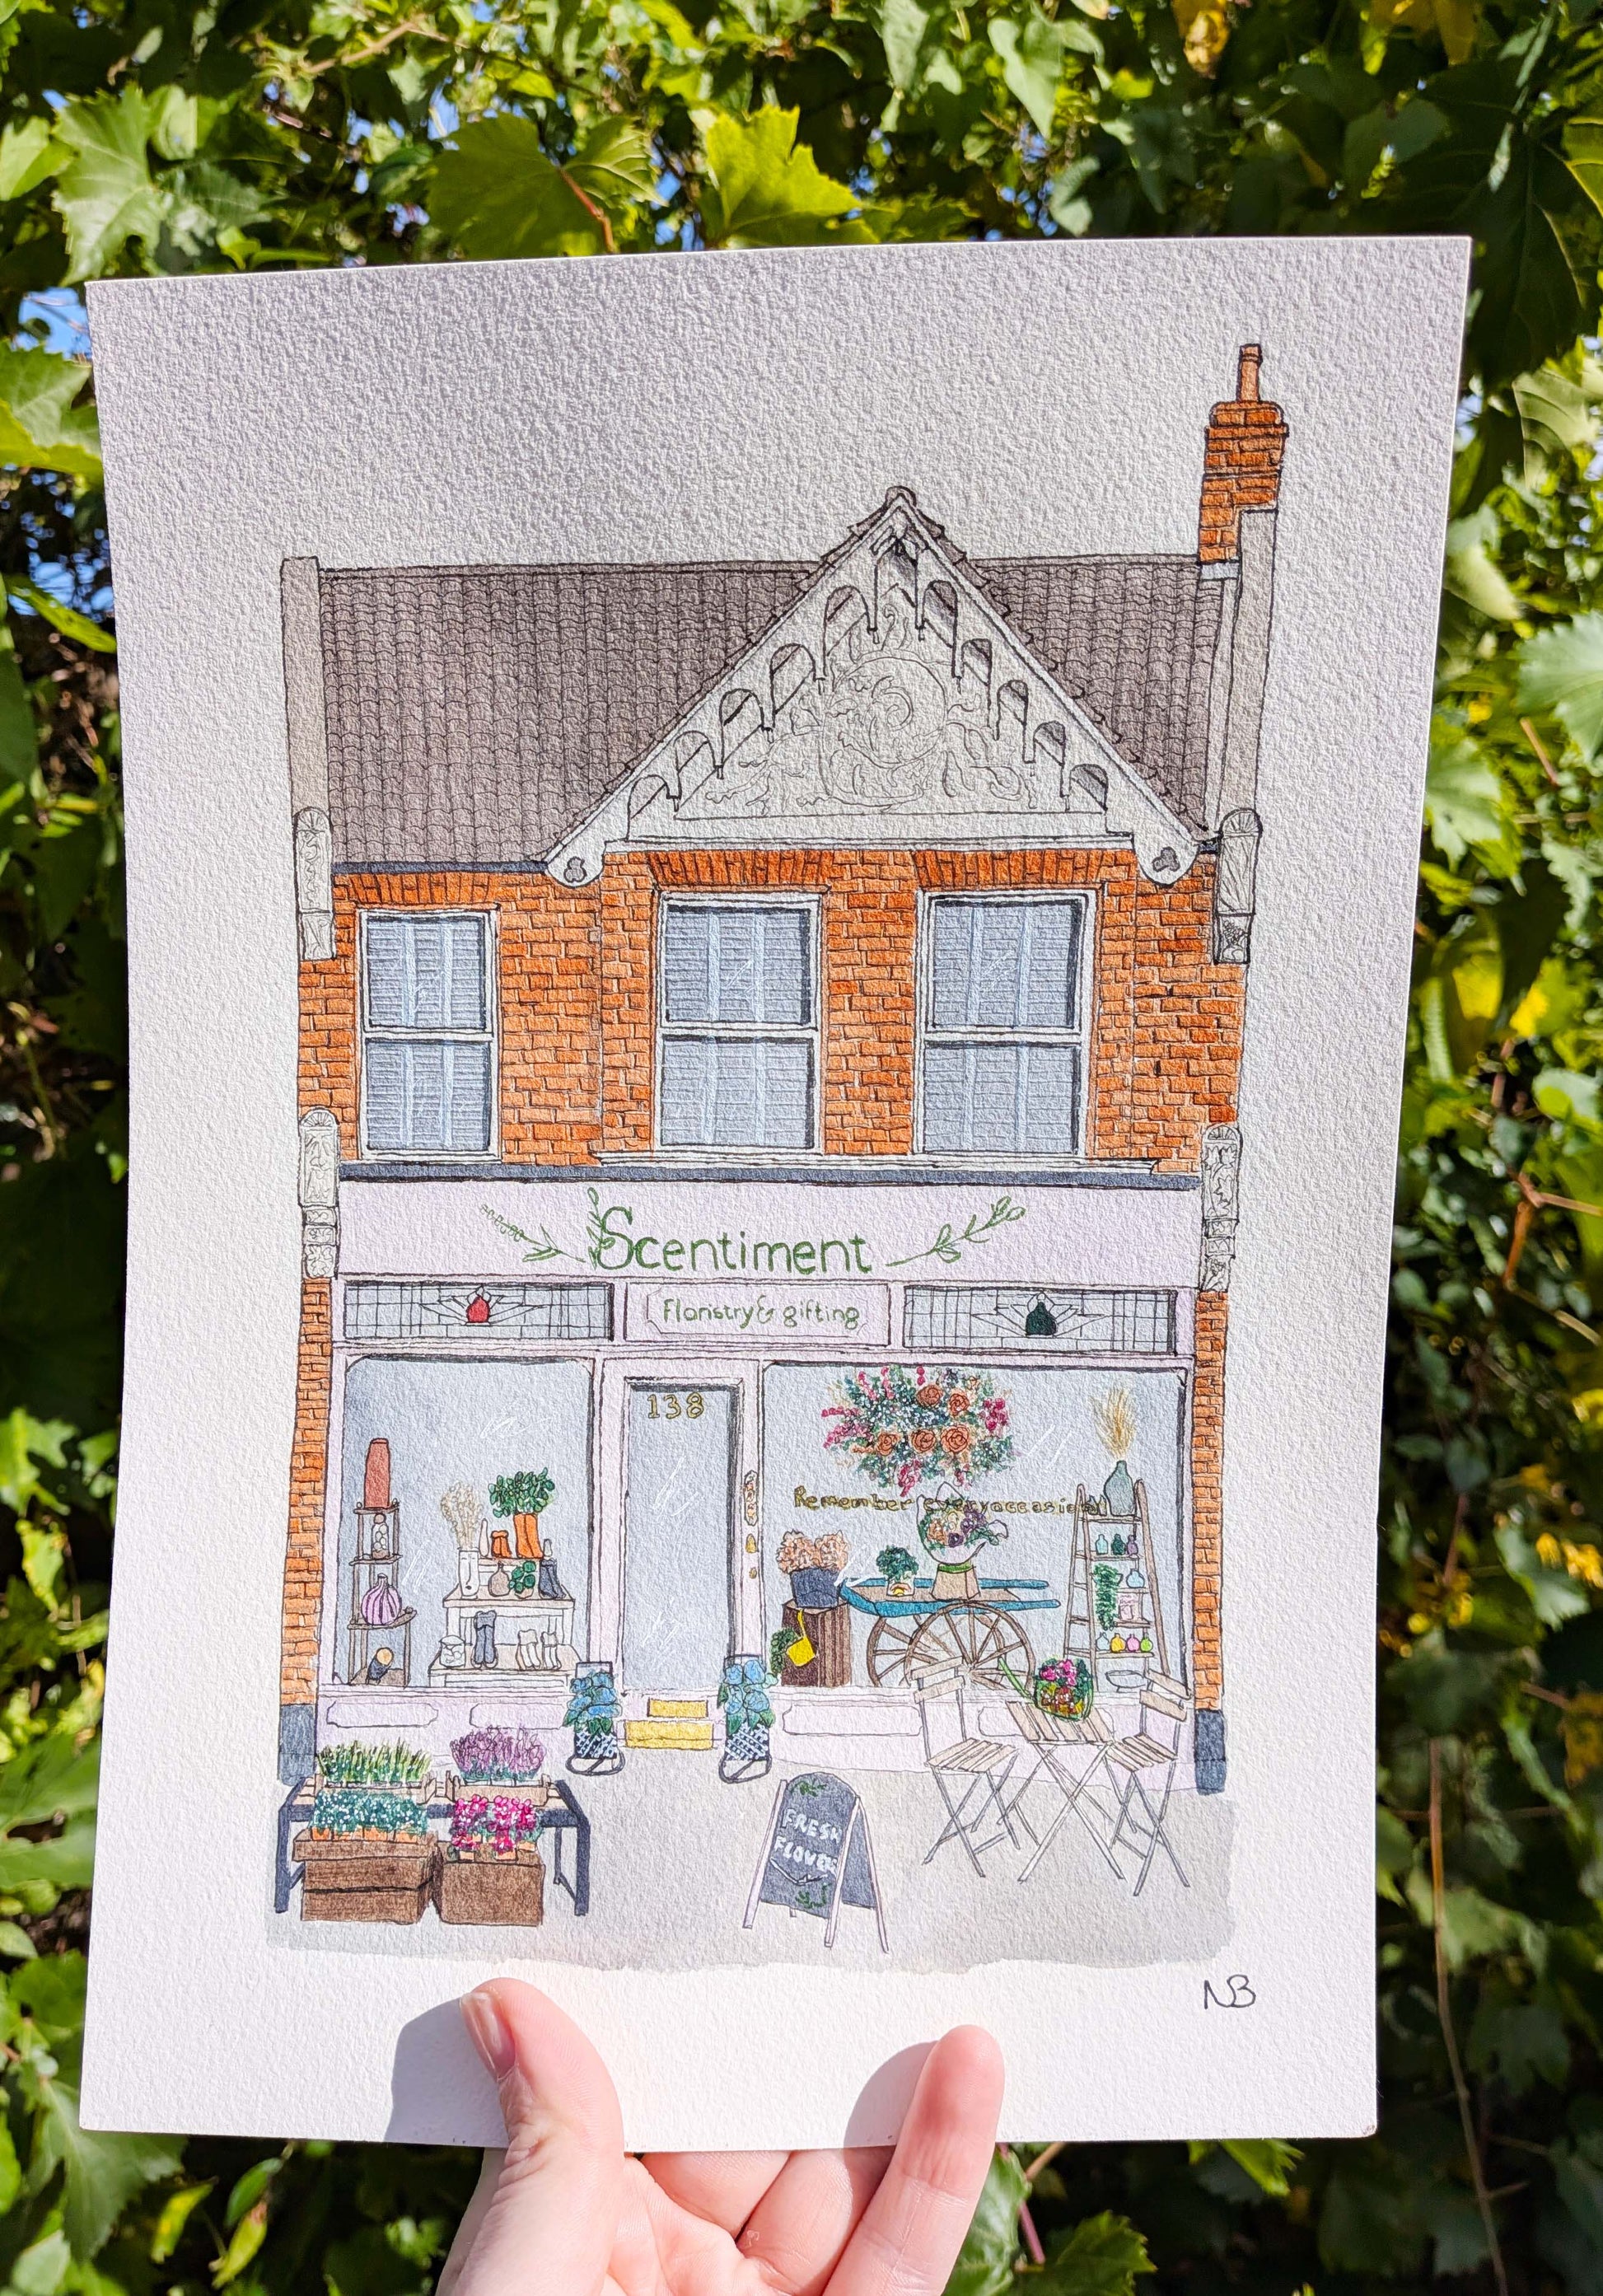 Scentiment
Floristry & gifting
138
Remember every occasion
FRESH
FLOWER
NB